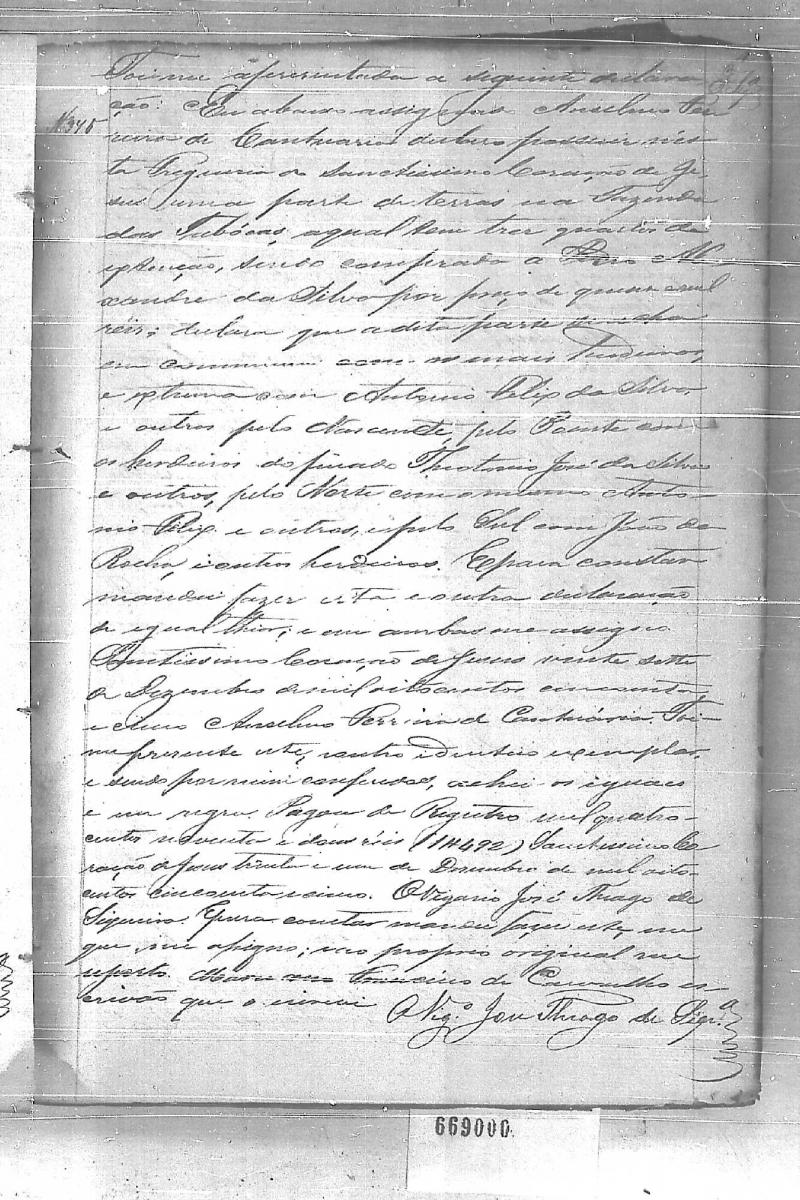 Foi me apresentada a seguinte declara
ção: Eu abaixo assignado Anselmo Fer
N 345
reira de Cantuaria declaro possuir nes-
ta Freguesia do Sanctissimo Coração de Je-
sus uma parte de terras na Fazenda
das Tabócas, aqual tem tres quartos de
extenção, sendo comprada a Ale
xandre da Silva por preço de mil
réis; declara que a dita parte se acha
em commum com os mais herdeiros,
e extrema com Antonio Felix da Silva
e outros pelo Nascente, pelo Poente com
os herdeiros do finado Theotonio José da Silva
e outros, pelo Norte com o mesmo Anto-
nio Felix e outros, e pelo Sul com João da
Rocha, e outros herdeiros. E para constar
mandei fazer esta e outra declaração
de igual theor, e em ambas me assigno.
Santissimo Coração de Jesus vinte sette
de Dezembro de mil oitocentos cincoenta
e cinco Anselmo Ferreira de Cantuaria. Foi-
me presente este, e outro identico exemplar,
e sendo por mim conferidos, achei os iguaes
e em regra. Pagou de Registro mil quatro-
centos noventa e dous réis (1$492) Santissimo Co
ração de Jesus trinta e um de Dezembro de mil oito-
centos cincoenta e cinco. O Vigario José Thiago de
Siqueira. E para constar mandei fazer este, em
que me assigno; e ao proprio original me
reporto. Francisco de Carvalho es-
crivão que o escrevi
O Vigº José Thiago de Siqrª
669000